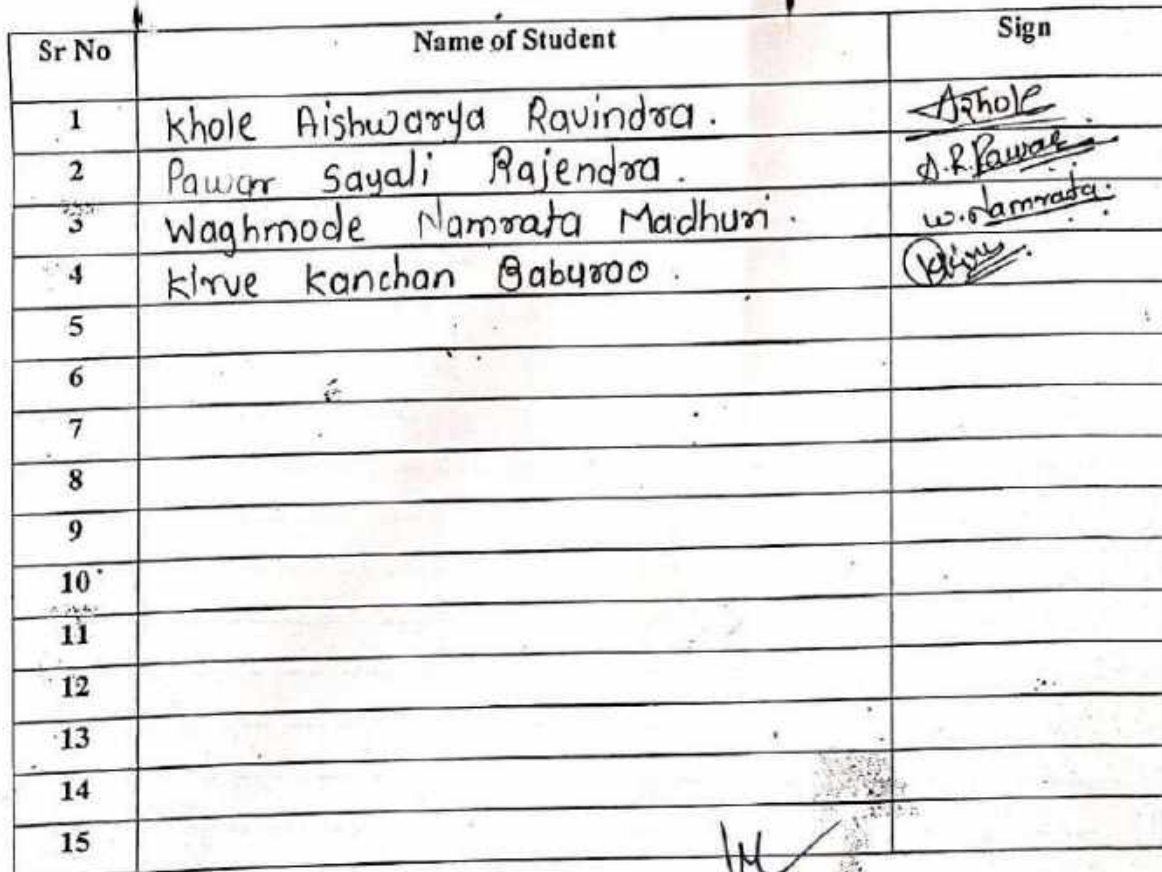 Sr No Name of Student Sign
1 Khole Aishwarya Ravindra. ARhole
2 Pawar Sayali Rajendra. S.R.Pawar
3 Waghmode Namrata Madhuri. W.Namrata.
4 Kirve Kanchan Baburao.
5
6
7
8
9
10
11
12
13
14
15